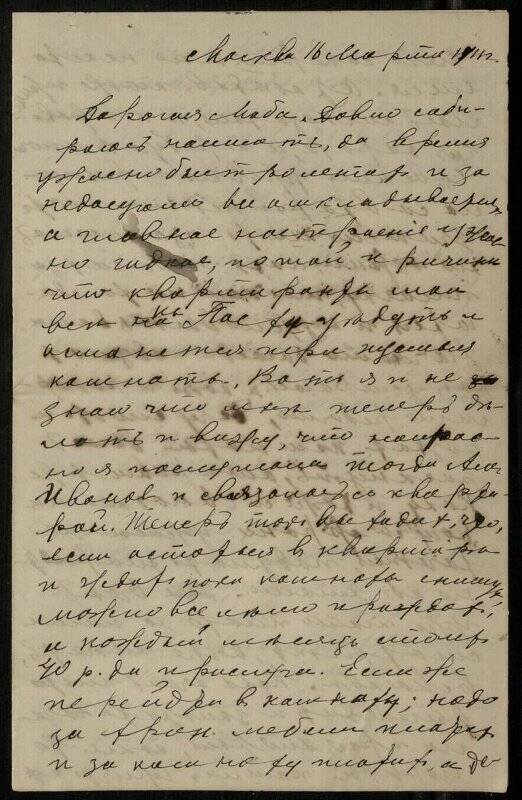 Москва 16 Марта 1911 г.
Дорогая Люба. Давно соби-
ралась написать, да время
ужасно быстро летит и за
недосугом все откладывается,
а главное настроение ужас-
но гадкое, по той причине
что квартиранты мои
все къ Пасху уѣдутъ и
останется три пустыя
комнаты. Вотъ я и не
знаю что мнѣ теперь дѣ-
лать и вижу, что напрас-
но я послушала тогда
Иванов и связалась со кварти-
рой. Теперь выходит, что,
если остаться в квартирѣ
и ждать пока комнаты снимут,
можно все прождать,
и каждый мѣсяцъ стоит
40 р. да прислуга. Если же
перейти в комнату; надо
за хран. мебели платить
и за комнату платить, а де-